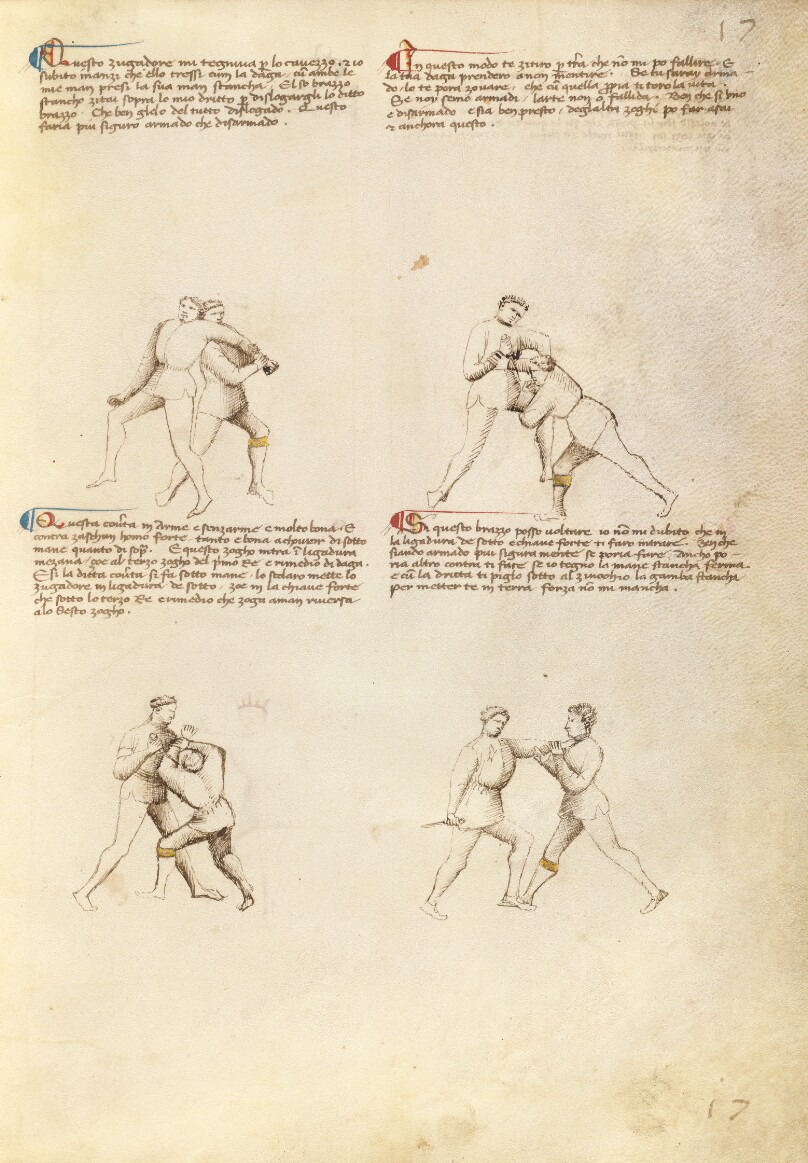 17
Questo zugadore mi tegniva p lo cavezzo. z io
subito manzi che ello tressi cum la daga, cũ ambe le
mie man presi la sua man stancha. El so brazzo
stancho zitai sopra lo mio dritto p dislogargli lo ditto
brazzo. Che ben gielo del tutto dislogado. Questo
faria piu siguro armado che disarmado.
In questo modo te zitiro p t̃ra che nõ mi po fallire. E
la tua daga prendero anon mentire. Se tu sarai arma-
do, lo te pora zovare, che cũ quella ti toro la vita.
Se noy semo armadi, larte non ò fallida. Ben che si uno
e disarmado e sia ben presto, degl altri zoghi po far asai
z anchora questo.
Questa cov̾ta in Arme e senzarme e molto bona. E
contra zaschun homo forte tanto e bona achovrir di sotto
mane quanto di sop̾. E questo zogho intra ĩ ligadura
mezana, zoe al terzo zogho del p̾mo Re e rimedio di daga.
E si la ditta cov̾ta si fa sotto mane, lo scolaro mette lo
zugadore in ligadura de sotto, zoe in la chiave forte
che sotto lo terzo Re e rimedio che zoga a man riversa
a lo Sesto zogho.
Si questo brazzo posso voltare io nõ mi dubito che in
la ligadura de sotto e chiave forte ti faro intrare. Ben che
siando armado piu siguramente se poria fare. Ancho po-
ria altro contra ti fare se io tegno la mane stancha ferma
e cũ la dritta ti piglo sotto al zinochio la gamba stancha
per metter te in terra forza nõ mi mancha.
17